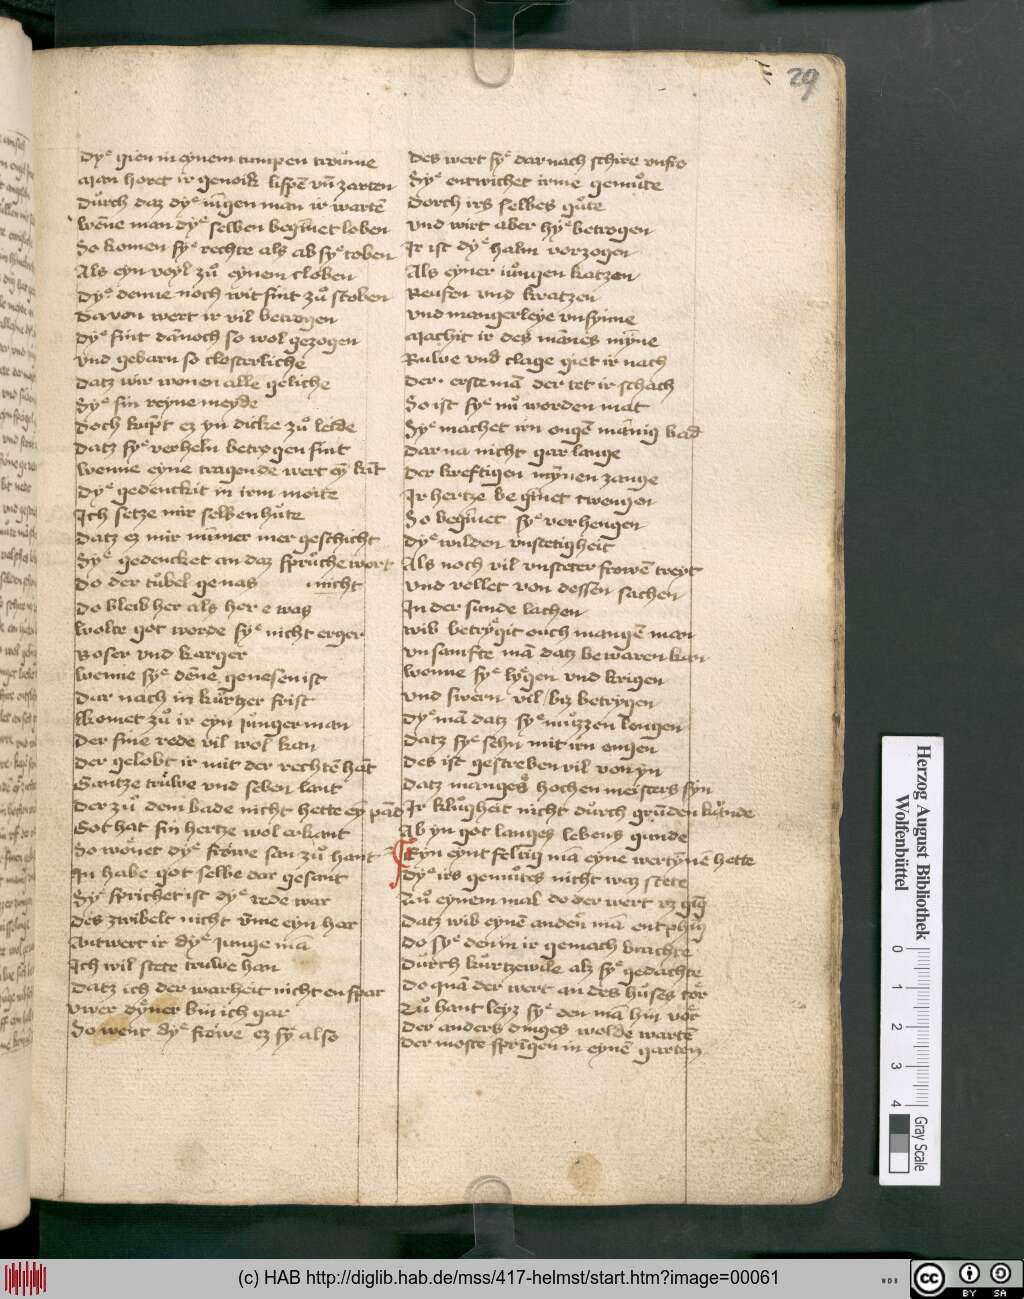 29
Dyͤ gien in eynem tumpen troume
Man horet ir genoik lispē vn̄ zarten
Durch daz dyͤ iūgen man ir wartē
Wēne man dyͤ selben begīnet loben
So komen syͤ rechte als ab syͤ toben
Als eyn voyl zuͦ eynem cloben
Dyͤ denne noch wit sint zuͦ stoben
Davon wert ir vil betrogen
Dyͤ sint dānoch so wol gezogen
Vnd gebarn so closterliche
Datz wir wonen alle geliche
Syͤ sin reyne meyde
Doch kūpt ez yn dicke zuͦ leide
Datz syͤ verheln betrogen sint
Wenne eyne tragende wert eȳ kīt
Dyͤ gedenckit in irm moite
Ich setze mir selben huͦte
Datz ez mir nūmer mer geschicht
Syͤ gedencket an daz spruche wort
Do der tuͦbel genas nicht
Do bleib her als her e was
Wolte got worde syͤ nicht erger
Boser vnd karger
Wenne syͤ dēne genesen ist
Dar nach in kurtzer frist
Komet zuͦ ir eyn junger man
Der sine rede vil wol kan
Der gelobt ir mit der rechtē hāt
Gantze truͦwe vnd seben lant
Der zuͦ dem bade nicht hette eȳ pād
Got hat sin hertze wol erkant
So wonet dyͤ frowe san zuͦ hant
In habe got selbe dar gesant
Syͤ sprichet ist dyͤ rede war
Des zwibelt nicht vme eyn har
Antwert ir dyͤ junge mā
Ich wil stete truwe han
Datz ich der warheit nicht en spar
Vwer dyͤner bin ich gar
So went dyͤ frowe ez syͤ also
Des wert syͤ dar nach schire vnfro
Syͤ entwichet irme gemuͦte
Dorch irs selbes guͦte
Vnd wirt aber hyͤ betrogen
Ir ist dyͤ halm vorzogen
Als eyner iuͦngen katzen
Reufen vnd kratzen
Vnd mangerleye vnsynne
Machit ir des mānes mȳne
Ruwe vnd clage giet ir nach
Der erste mā der tet ir schach
So ist syͤ nuͦ worden mat
Syͤ machet irn ougē mānig bad
Dar na nicht gar lange
Der kreftigen mȳnen zange
Ir hertze begīnet twengen
So begīnet syͤ vorhengen
Dyͤ wilden vnstetigheit
Als noch vil vnsteter frowē treyt
Vnd vellet von dessen sachen
In der sunde lachen
Wib betrygͤit ouch mangē man
Vnsamfte mā datz bewaren kan
Wenne syͤ lyͤgen vnd krigen
Vnd swern vil biz betrygen
Dyͤ mā datz syͤ muͦzzen lougen
Datz syͤ sehn mit irn ougen
Des ist gestreben vil von yn
Datz manges hochen meisters syn
Ir kluͦgheit nicht durch grūden kuͦnde
Ab yn got langes lebens gunde
Eyn eynfeltig mā eyne wertynē hette
Dyͤ irs gemuͦtes nicht waz stete
Zuͦ eynem mal do der wert vz gīg
Datz wib eynē andern mā entphīg
Do syͤ den in ir gemach brachte
Durch kurtzewile alz syͤ gedachte
Do quā der wert an des huses tor
Zuͦ hant leyz syͤ den mā hin vor
Der anders dinges wolde wartē
Der moste sprīgen in eynē garten
Herzog August Bibliothek
Wolfenbüttel
0
1
2
3
4
Gray Scale
(c) HAB http://diglib.hab.de/mss/417-helmst/start.htm?image=00061
WDB
cc
BY SA